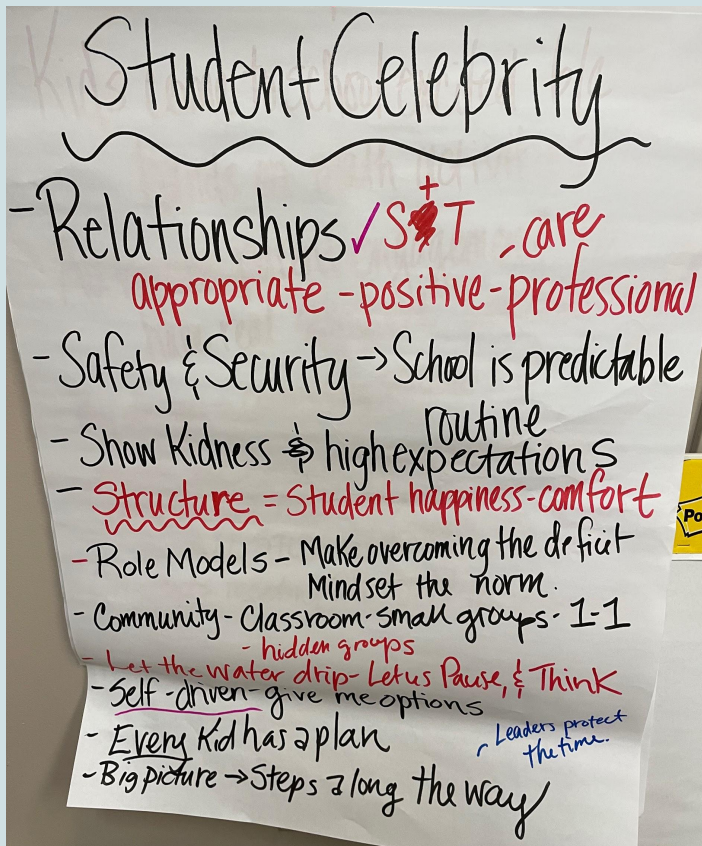 Student Celebrity
- Relationships ✓ S + T - care
appropriate - positive - professional
- Safety & Security → School is predictable
routine
- Show Kidness & high expectations
- Structure = Student happiness - comfort
- Role Models - Make overcoming the deficit
Mindset the norm.
- Community - Classroom - small groups - 1-1
- hidden groups
- Let the water drip - Let us Pause, & Think
- Self-driven - give me options
- Every Kid has a plan
- Leaders protect
the time.
- Big picture → Steps along the way
Po